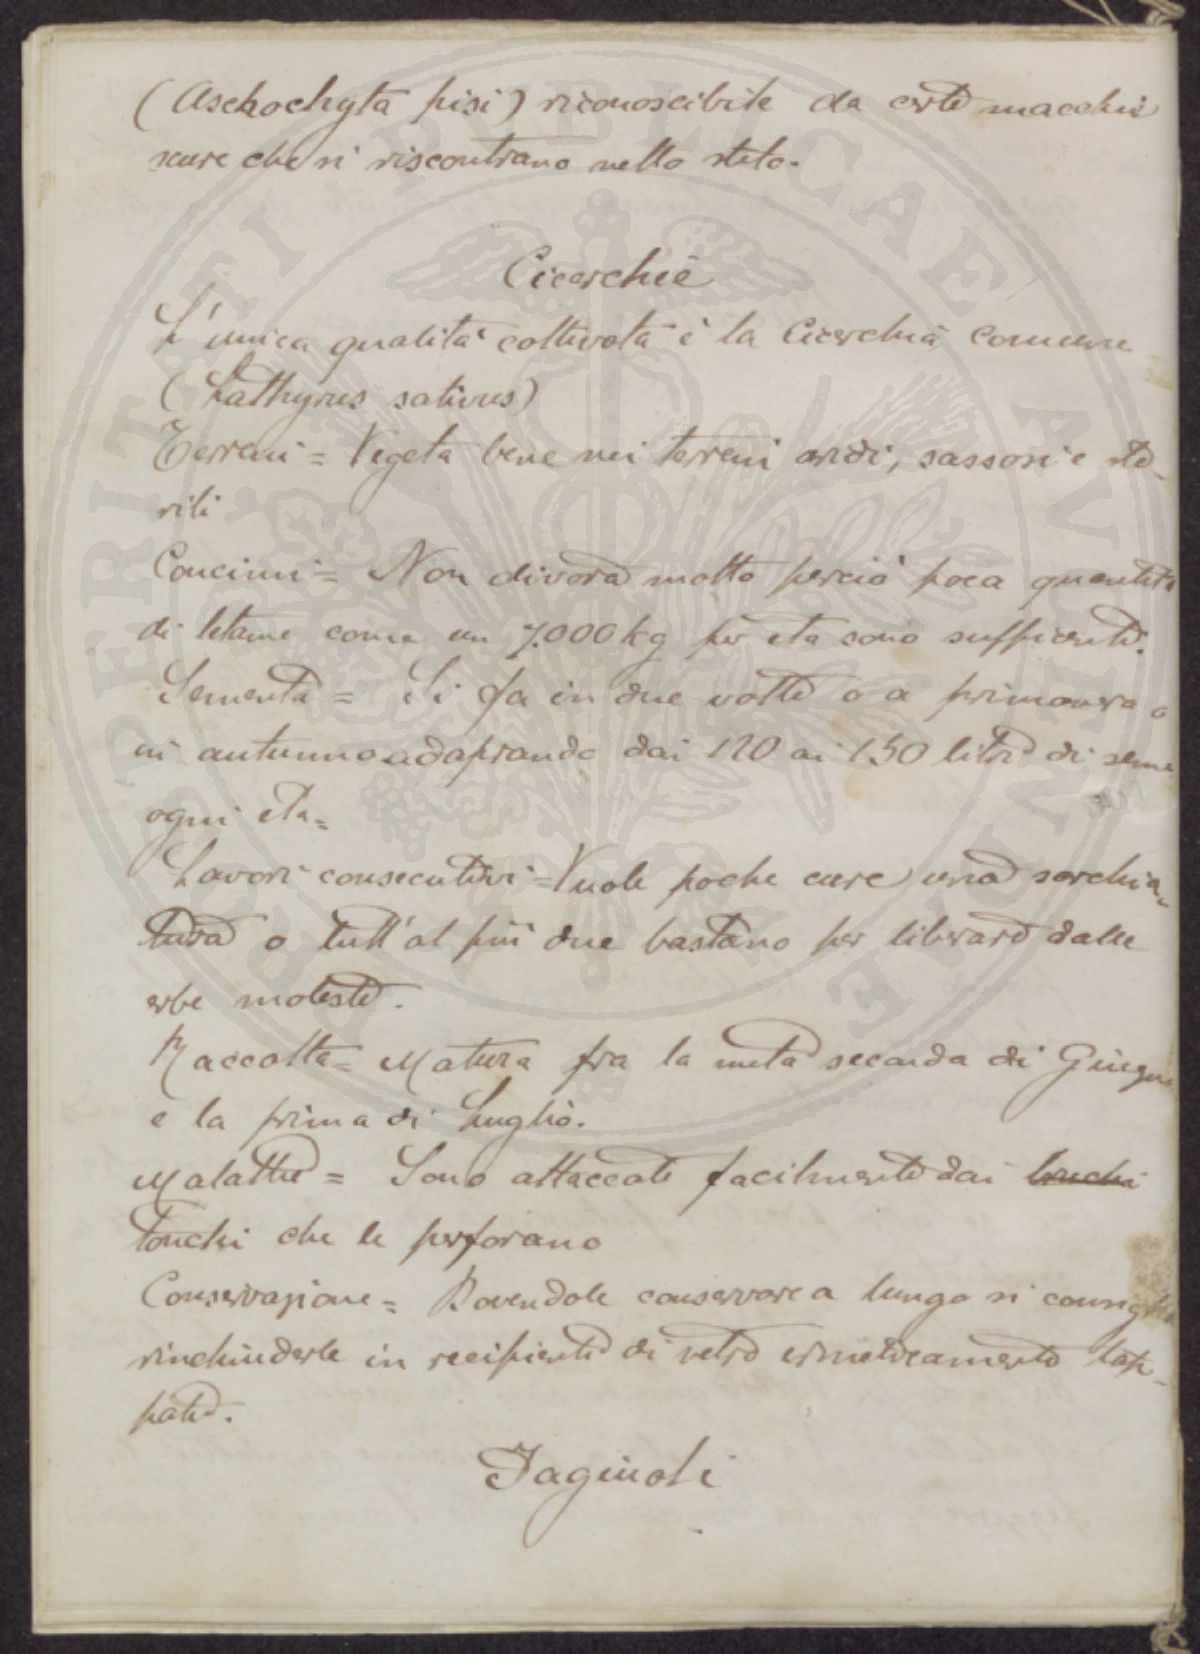 (Aschochyta pisi) riconoscibile da certe macchie
scure che si riscontrano nello stelo.
Cicerchie
L'unica qualità coltivata è la Cicerchia comune
(Lathyrus sativus)
Terreni = Vegeta bene nei terreni aridi, sassosi e ste-
rili
Concimi = Non divora molto perciò poca quantità
di letame come un 7.000 kg per eta sono sufficenti.
Sementa = Si fa in due volte o a primavera o
in autunno adoprando dai 120 ai 150 litri di seme
ogni eta =
Lavori consecutivi = Vuole poche cure una sarchia-
tura o tutt'al più due bastano per liberare dalle
erbe moleste.
Raccolta = Matura fra la metà seconda di Giugno
e la prima di Luglio.
Malattie = Sono attaccate facilmente dai bruchi
tonchi che le perforano
Conservazione = Dovendole conservare a lungo si consiglia
rinchiuderle in recipienti di vetro ermeticamente tap-
pati.
Fagiuoli
PROSPERITATI PUBLICAE AVGENDAE